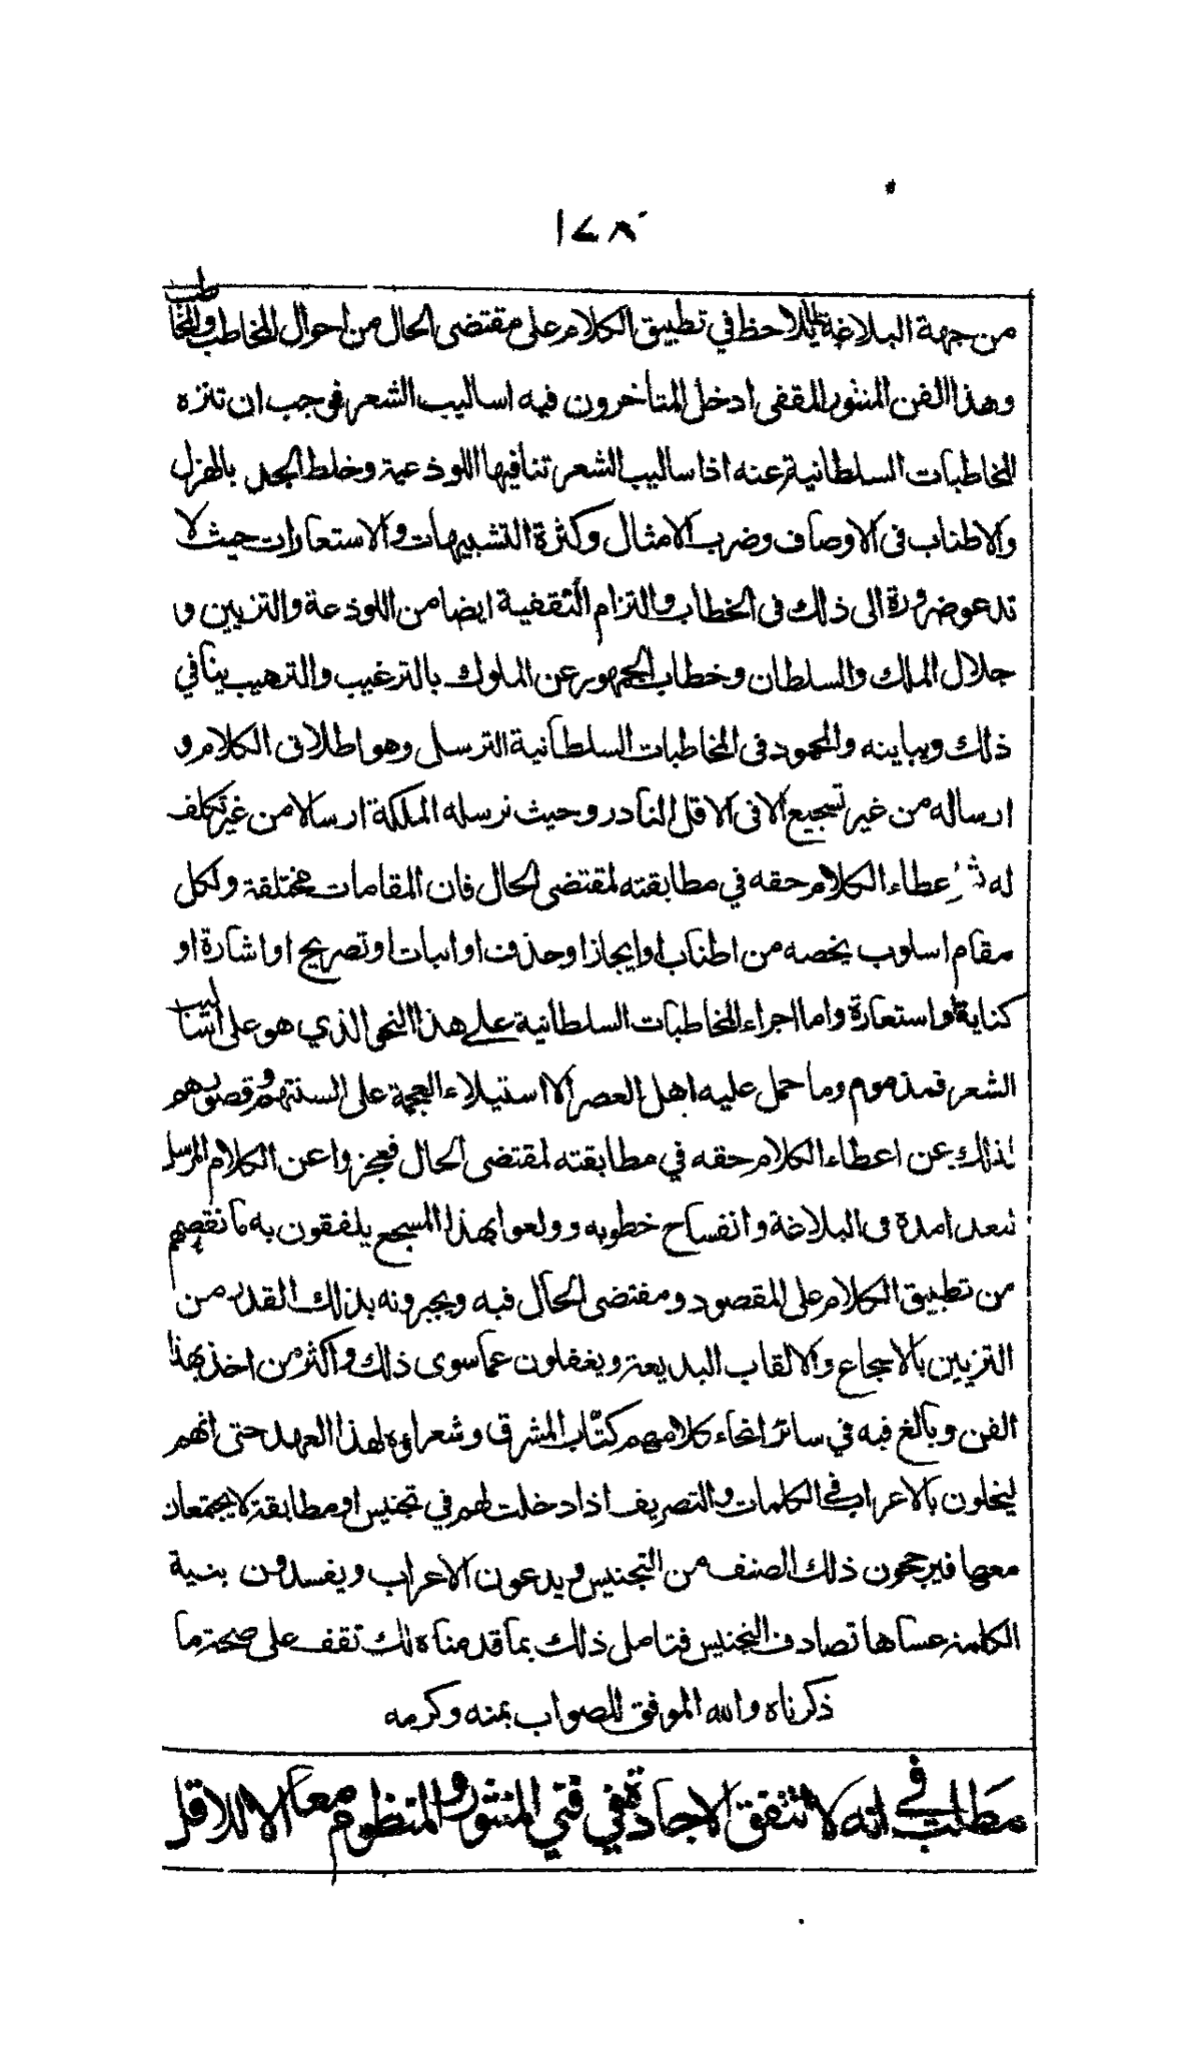 ١٤٨
من جهة البلاغة لما يلاحظ في تطبيق الكلام على مقتضى الحال من احوال المخاطب والمخاطب
وهذا الفن المنثور المقفى ادخل المتأخرون فيه اساليب الشعر فوجب ان تنزه
المخاطبات السلطانية عنه اذ اساليب الشعر تنافيها اللوذعية وخلط الجد بالهزل
والاطناب في الاوصاف وضرب الامثال وكثرة التشبيهات والاستعارات حيث لا
تدعو ضرورة الى ذلك في الخطاب والتزام التقفية ايضا من اللوذعة والتزيين و
جلال الملك والسلطان وخطاب الجمهور عن الملوك بالترغيب والترهيب ينافي
ذلك ويباينه والمحمود في المخاطبات السلطانية الترسل وهو اطلاق الكلام و
ارساله من غير تسجيع الا في الاقل النادر وحيث نرسله الملكة ارسالا من غير تكلف
له ثم عطاء الكلام حقه في مطابقته لمقتضى الحال فان المقامات مختلفة ولكل
مقام اسلوب يخصه من اطناب او ايجاز او حذف او اثبات او تصريح او اشارة او
كناية او استعارة واما اجراء المخاطبات السلطانية على هذا النحو الذي هو على اساليب
الشعر فمذموم وما حمل عليه اهل العصر الا استيلاء العجمة على السنتهم وقصورهم
لذلك عن اعطاء الكلام حقه في مطابقته لمقتضى الحال فعجزوا عن الكلام المرسل
لبعد امده في البلاغة وانفساح خطوبه وولعوا بهذا المسجع يلفقون به ما نقصهم
من تطبيق الكلام على المقصود ومقتضى الحال فيه ويجبرونه بذلك القدر من
التزيين بالاسجاع والالقاب البديعة ويغفلون عما سوى ذلك واكثر من اخذ بهذا
الفن وبالغ فيه في سائر انحاء كلامهم كتّاب المشرق وشعراؤه لهذا العهد حتى انهم
ليخلون بالاعراب في الكلمات والتصريف اذا دخلت لهم في تجنيس او مطابقة لا يجتمعان
معها فيرجحون ذلك الصنف من التجنيس ويدعون الاعراب ويفسدون بنية
الكلمة عساها تصادف التجنيس فتامل ذلك بما قدمناه لك تقف على صحة ما
ذكرناه والله الموفق للصواب بمنه وكرمه
مطلب في انه لا تتفق الاجادة في فني المنثور والمنظوم معا الا للاقل